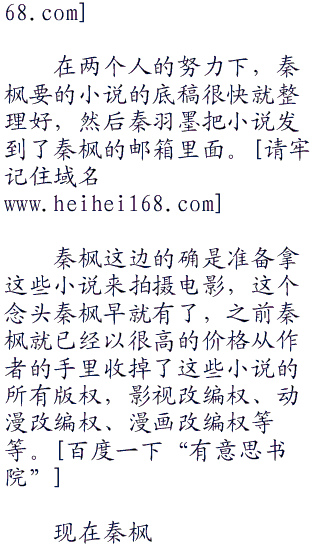 68.com]
在两个人的努力下，秦
枫要的小说的底稿很快就整
理好，然后秦羽墨把小说发
到了秦枫的邮箱里面。[请牢
记住域名
www.heihei168.com]
秦枫这边的确是准备拿
这些小说来拍摄电影，这个
念头秦枫早就有了，之前秦
枫就已经以很高的价格从作
者的手里收掉了这些小说的
所有版权，影视改编权、动
漫改编权、漫画改编权等
等。[百度一下“有意思书
院”]
现在秦枫